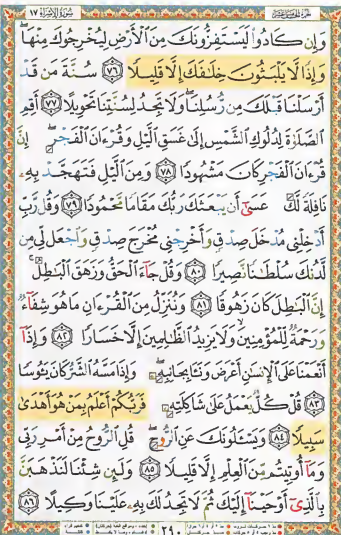 سورة الإسراء ١٧
وَإِن كَادُوا۟ لَيَسْتَفِزُّونَكَ مِنَ ٱلْأَرْضِ لِيُخْرِجُوكَ مِنْهَا ۖ
وَإِذًا لَّا يَلْبَثُونَ خِلَـٰفَكَ إِلَّا قَلِيلًا ٧٦ سُنَّةَ مَن قَدْ
أَرْسَلْنَا قَبْلَكَ مِن رُّسُلِنَا ۖ وَلَا تَجِدُ لِسُنَّتِنَا تَحْوِيلًا ٧٧ أَقِمِ
ٱلصَّلَوٰةَ لِدُلُوكِ ٱلشَّمْسِ إِلَىٰ غَسَقِ ٱلَّيْلِ وَقُرْءَانَ ٱلْفَجْرِ ۖ إِنَّ
قُرْءَانَ ٱلْفَجْرِ كَانَ مَشْهُودًا ٧٨ وَمِنَ ٱلَّيْلِ فَتَهَجَّدْ بِهِۦ
نَافِلَةً لَّكَ عَسَىٰٓ أَن يَبْعَثَكَ رَبُّكَ مَقَامًا مَّحْمُودًا ٧٩ وَقُل رَّبِّ
أَدْخِلْنِى مُدْخَلَ صِدْقٍ وَأَخْرِجْنِى مُخْرَجَ صِدْقٍ وَٱجْعَل لِّى مِن
لَّدُنكَ سُلْطَـٰنًا نَّصِيرًا ٨٠ وَقُلْ جَآءَ ٱلْحَقُّ وَزَهَقَ ٱلْبَـٰطِلُ ۚ
إِنَّ ٱلْبَـٰطِلَ كَانَ زَهُوقًا ٨١ وَنُنَزِّلُ مِنَ ٱلْقُرْءَانِ مَا هُوَ شِفَآءٌ
وَرَحْمَةٌ لِّلْمُؤْمِنِينَ ۙ وَلَا يَزِيدُ ٱلظَّـٰلِمِينَ إِلَّا خَسَارًا ٨٢ وَإِذَآ
أَنْعَمْنَا عَلَى ٱلْإِنسَـٰنِ أَعْرَضَ وَنَـَٔا بِجَانِبِهِۦ ۖ وَإِذَا مَسَّهُ ٱلشَّرُّ كَانَ يَـُٔوسًا
٨٣ قُلْ كُلٌّ يَعْمَلُ عَلَىٰ شَاكِلَتِهِۦ فَرَبُّكُمْ أَعْلَمُ بِمَنْ هُوَ أَهْدَىٰ
سَبِيلًا ٨٤ وَيَسْـَٔلُونَكَ عَنِ ٱلرُّوحِ ۖ قُلِ ٱلرُّوحُ مِنْ أَمْرِ رَبِّى
وَمَآ أُوتِيتُم مِّنَ ٱلْعِلْمِ إِلَّا قَلِيلًا ٨٥ وَلَئِن شِئْنَا لَنَذْهَبَنَّ
بِٱلَّذِىٓ أَوْحَيْنَآ إِلَيْكَ ثُمَّ لَا تَجِدُ لَكَ بِهِۦ عَلَيْنَا وَكِيلًا ٨٦
٢٩٠